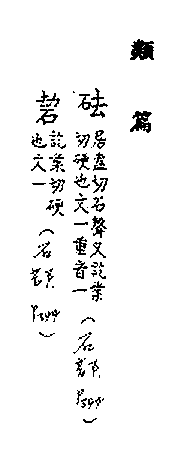 類篇
砝
居盍切石聲又訖業
切硬也文一重音一
(石 P344)
訖業切硬
也文一
(石 P344)